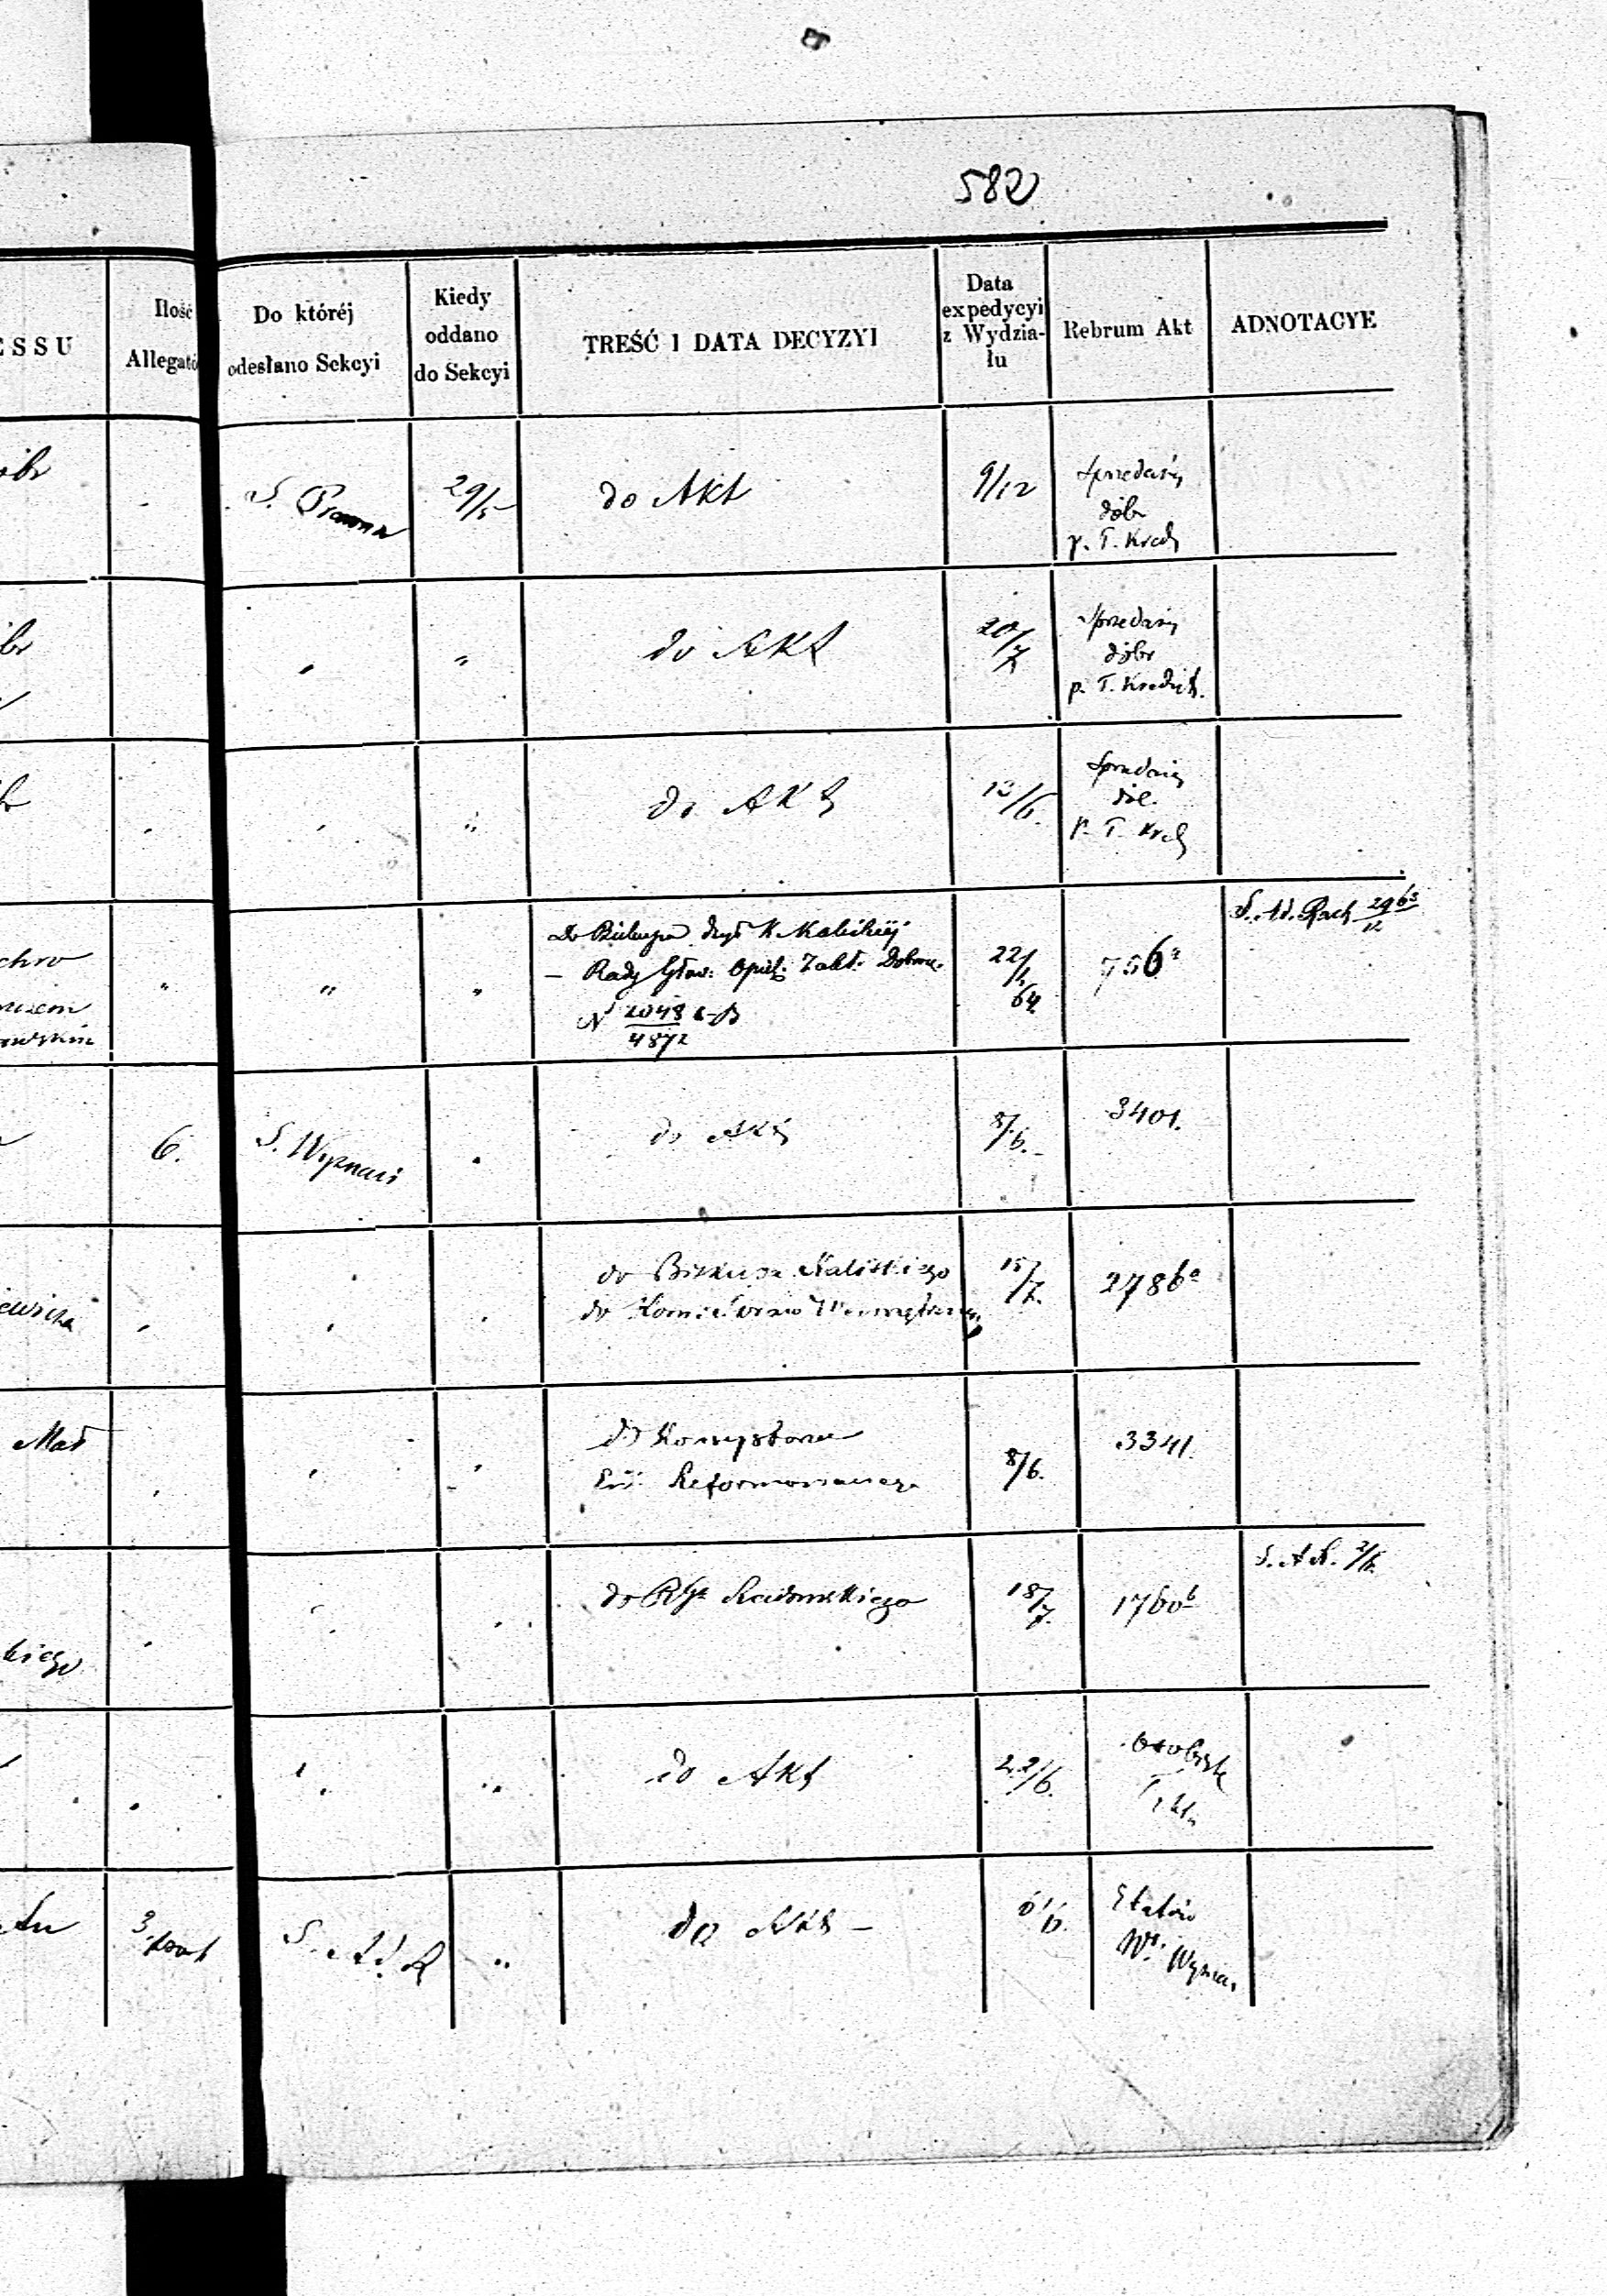 582
ESSU
Ilość
Allegató
Do któréj
odesłano Sekcyi
Kiedy
oddano
do Sekcyi
TREŚĆ I DATA DECYZYI
Data
expedycyi
z Wydzia-
łu
Rebrum Akt
ADNOTACYE
S. Prawna
29/5
do Akt
9/12
Sprzedaży
dóbr
p. T. Kred
"
do Akt
20/7
Sprzedaży
dóbr
p. T. Kredyt.
"
do Akt
12/6.
Sprzedaży
p. T. Kred
chro
"
"
"
Do Biskupa Kaliskiej
– Rady Głow: Opiek: Zakł. Dobrocz.
N 2048/4872
22/1
64
756a
S. Ad. Rach 29/12 63
6.
S. Wyznań
do Akt
8/6.
3401.
ewicza
do Biskupa Kaliskiego
do Kom: Spraw Wewnętrzn.
15/7.
2786a
Mał
do Konsystorza
Ew: Reformowanego
8/6.
3341.
kiego
do Rządu Radomskiego
18/7.
1760b
S. A. R. 2/6.
do Akt
22/6.
osobiste
3
S. Ad. R
"
do Akt –
6/6.
Etatów
Wł. Wyznań